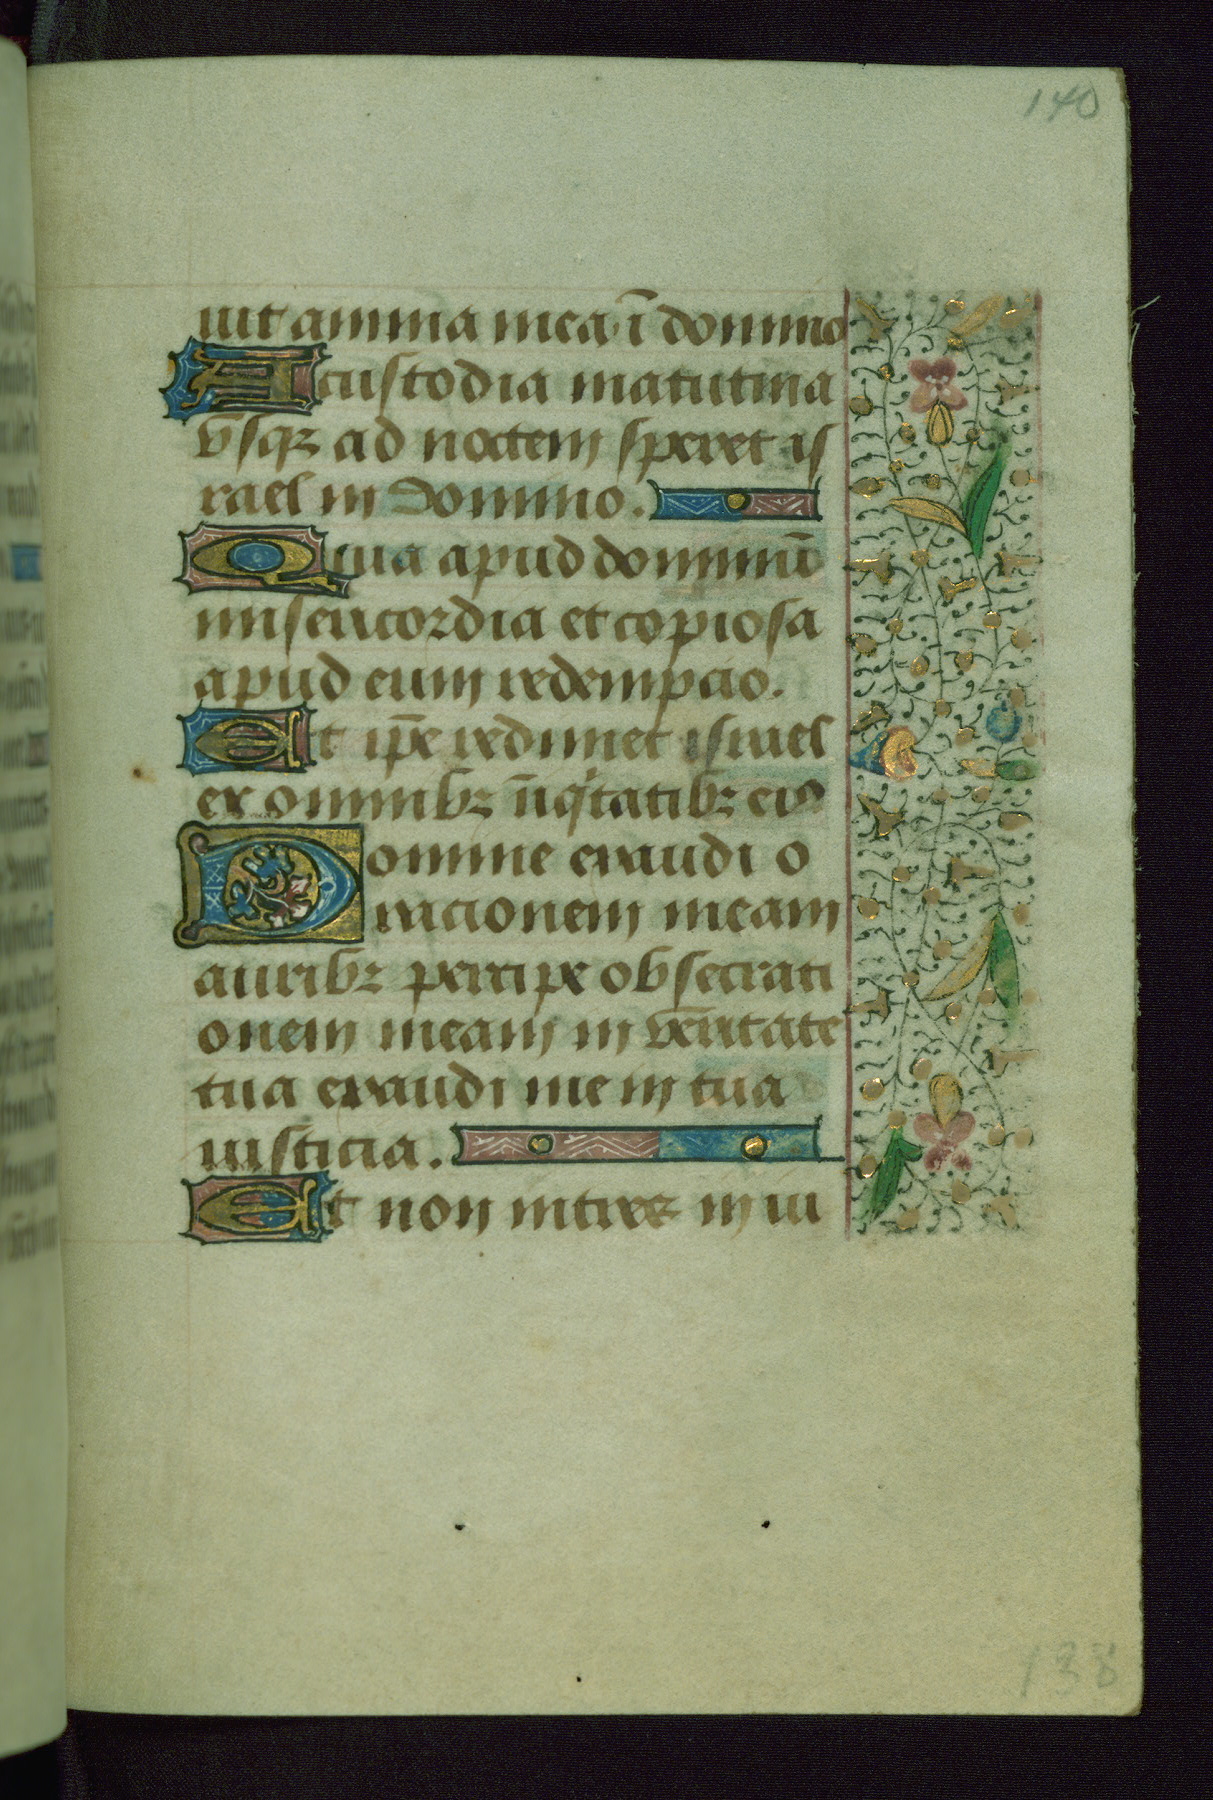 140
uit anima mea ī domino
A custodia matutina
v̄sqꝫ ad noctem speret is
rael in domino.
Quia apud dominū
misericordia et copiosa
apud eum redempcio.
Et ip̄e redimet israel
ex omnibꝫ iniqͥtatibꝫ eiꝰ
Domine exaudi o
racionem meam
auribꝫ percipe obsecrati
onem meam in veritate
tua exaudi me in tua
iusticia.
Et non intres in iu
138